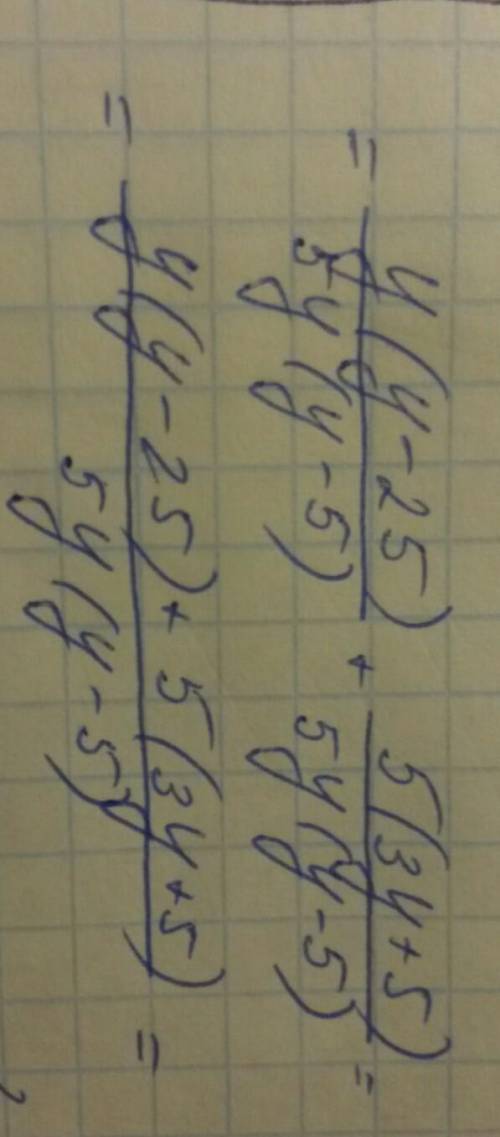 = y(y-25)/5y(y-5) + 5(3y+5)/5y(y-5) =
= y(y-25)+5(3y+5)/5y(y-5) =